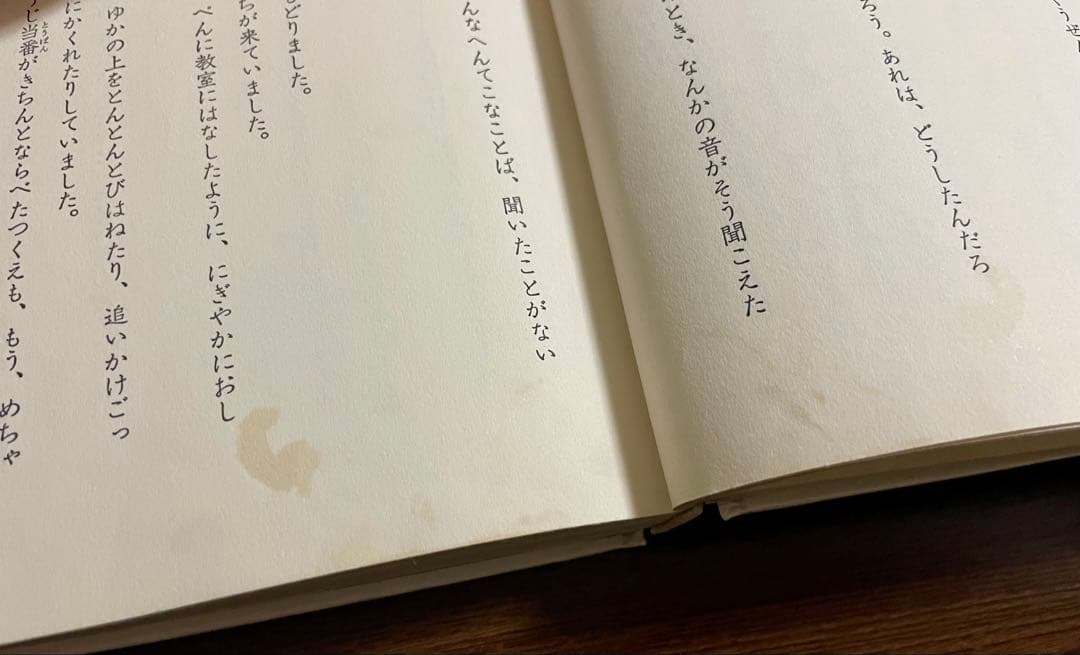 うぜん
ろう。あれは、どうしたんだろ
とき、なんかの音がそう聞こえた
んなへんてこなことば、聞いたことがない
どりました。
ちが来ていました。
ぺんに教室にはなしたように、にぎやかにおし
ゆかの上をとんとんとびはねたり、追いかけごっ
にかくれたりしていました。
うじ当番がきちんとならべたつくえも、もう、めちゃ
とうばん